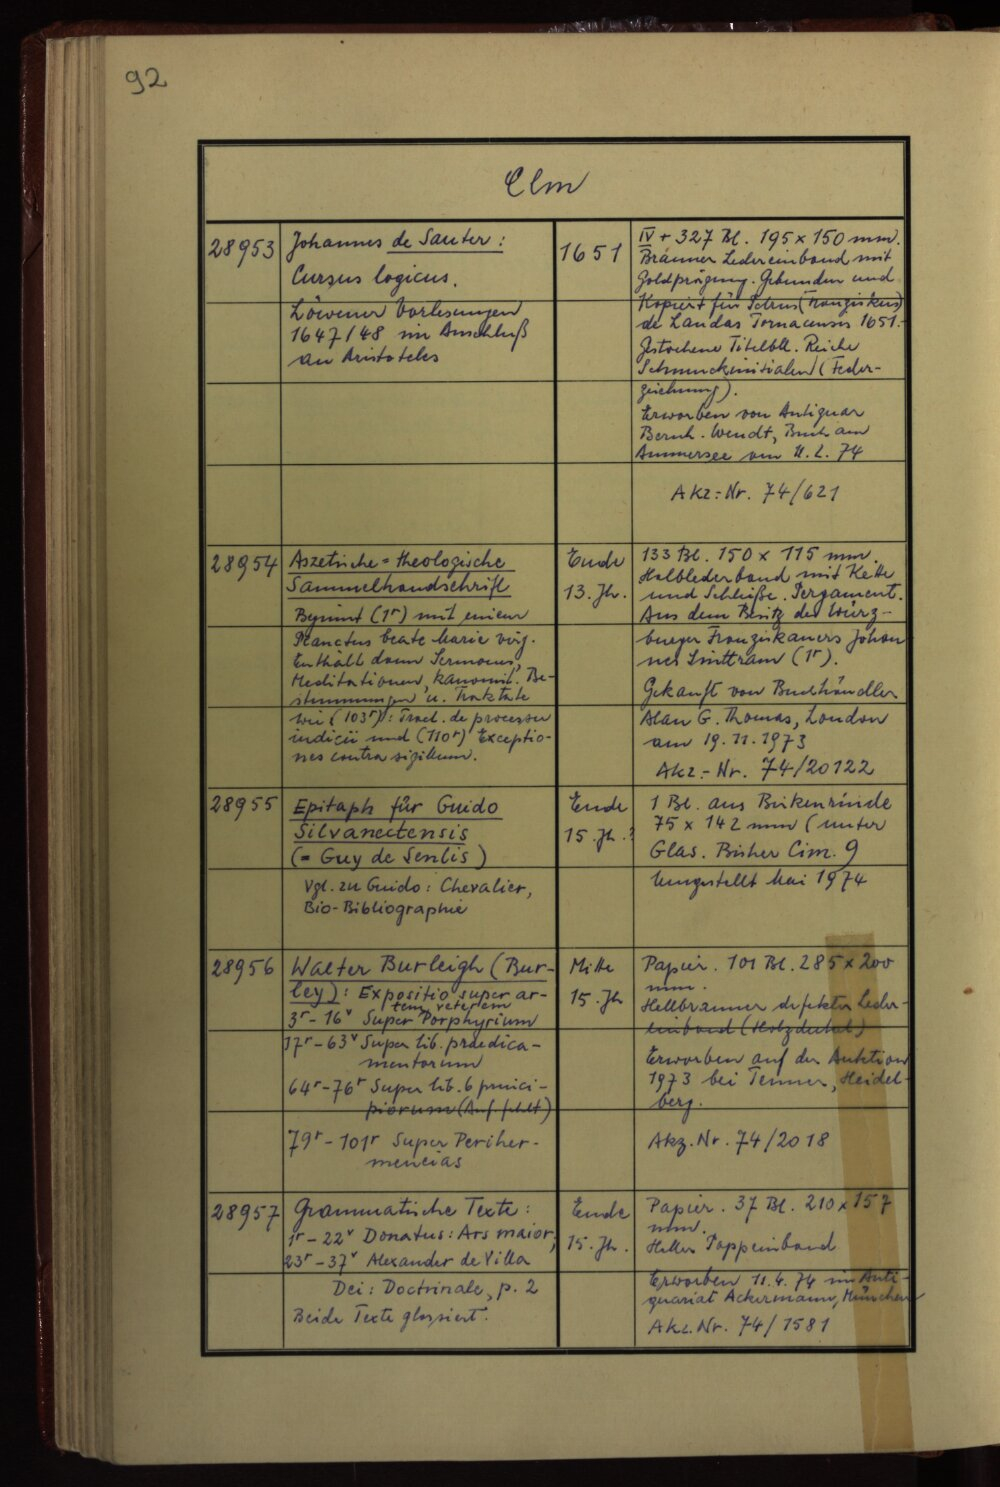 92
Clm
28953
Johannes de Sauter:
Cursus logicus.
Löwener Vorlesungen
1647/48 im Anschluß
an Aristoteles
1651
IV + 327 Bl. 195 x 150 mm.
Brauner Ledereinband mit
Goldprägung. Gebunden und
Kopiert für Petrus (Franziskus)
de Landas Tornacensis 1651.
Gestochene Titelbll. Reiche
Schmuckinitialen (Feder-
zeichnung).
Erworben von Antiquar
Bernh. Wendt, Buch am
Ammersee am 11.2.74
Akz.-Nr. 74/621
28954
Aszetische-theologische
Sammelhandschrift
Beginnt (1r) mit einem
Planctus beate Marie virg.
Enthält dann Sermones,
Meditationen, kanonist. Be-
stimmungen u. Traktate
wie (103r): Tract. de processu
iudicii und (110r) Exceptio-
nes contra sigillum.
Ende
13. Jh.
133 Bl. 150 x 115 mm.
Halblederband mit Kette
und Schließe. Pergament.
Aus dem Besitz des Würz-
burger Franziskaners Johan
nes Sinttram (1r).
Gekauft von Buchhändler
Alan G. Thomas, London
am 19.11.1973
Akz.-Nr. 74/20122
28955
Epitaph für Guido
Silvanectensis
(= Guy de Senlis)
Vgl. zu Guido: Chevalier,
Bio-Bibliographie
Ende
15. Jh.?
1 Bl. aus Birkenrinde
75 x 142 mm (unter
Glas. Bisher Cim. 9
Umgestellt Mai 1974
28956
Walter Burleigh (Bur-
ley): Expositio super ar-
tem veterem
3r-16v Super Porphyrium
17r-63v Super lib. praedica-
mentorum
64r-76r Super lib. 6 princi-
piorum (Anf. fehlt)
79r-101r Super Periher-
meneias
Mitte
15. Jh
Papier. 101 Bl. 285 x 200
mm.
Hellbrauner defekter Leder-
einband (Holzdeckel)
Erworben auf der Auktion
1973 bei Tenner, Heidel-
berg.
Akz. Nr. 74/2018
28957
Grammatische Texte:
1r-22v Donatus: Ars maior,
23r-37v Alexander de Villa
Dei: Doctrinale, p. 2
Beide Texte glossiert.
Ende
15. Jh.
Papier. 37 Bl. 210 x 157
mm.
Heller Pappeinband
Erworben 11.4.74 im Anti-
quariat Ackermann, München
Akz. Nr. 74/1581